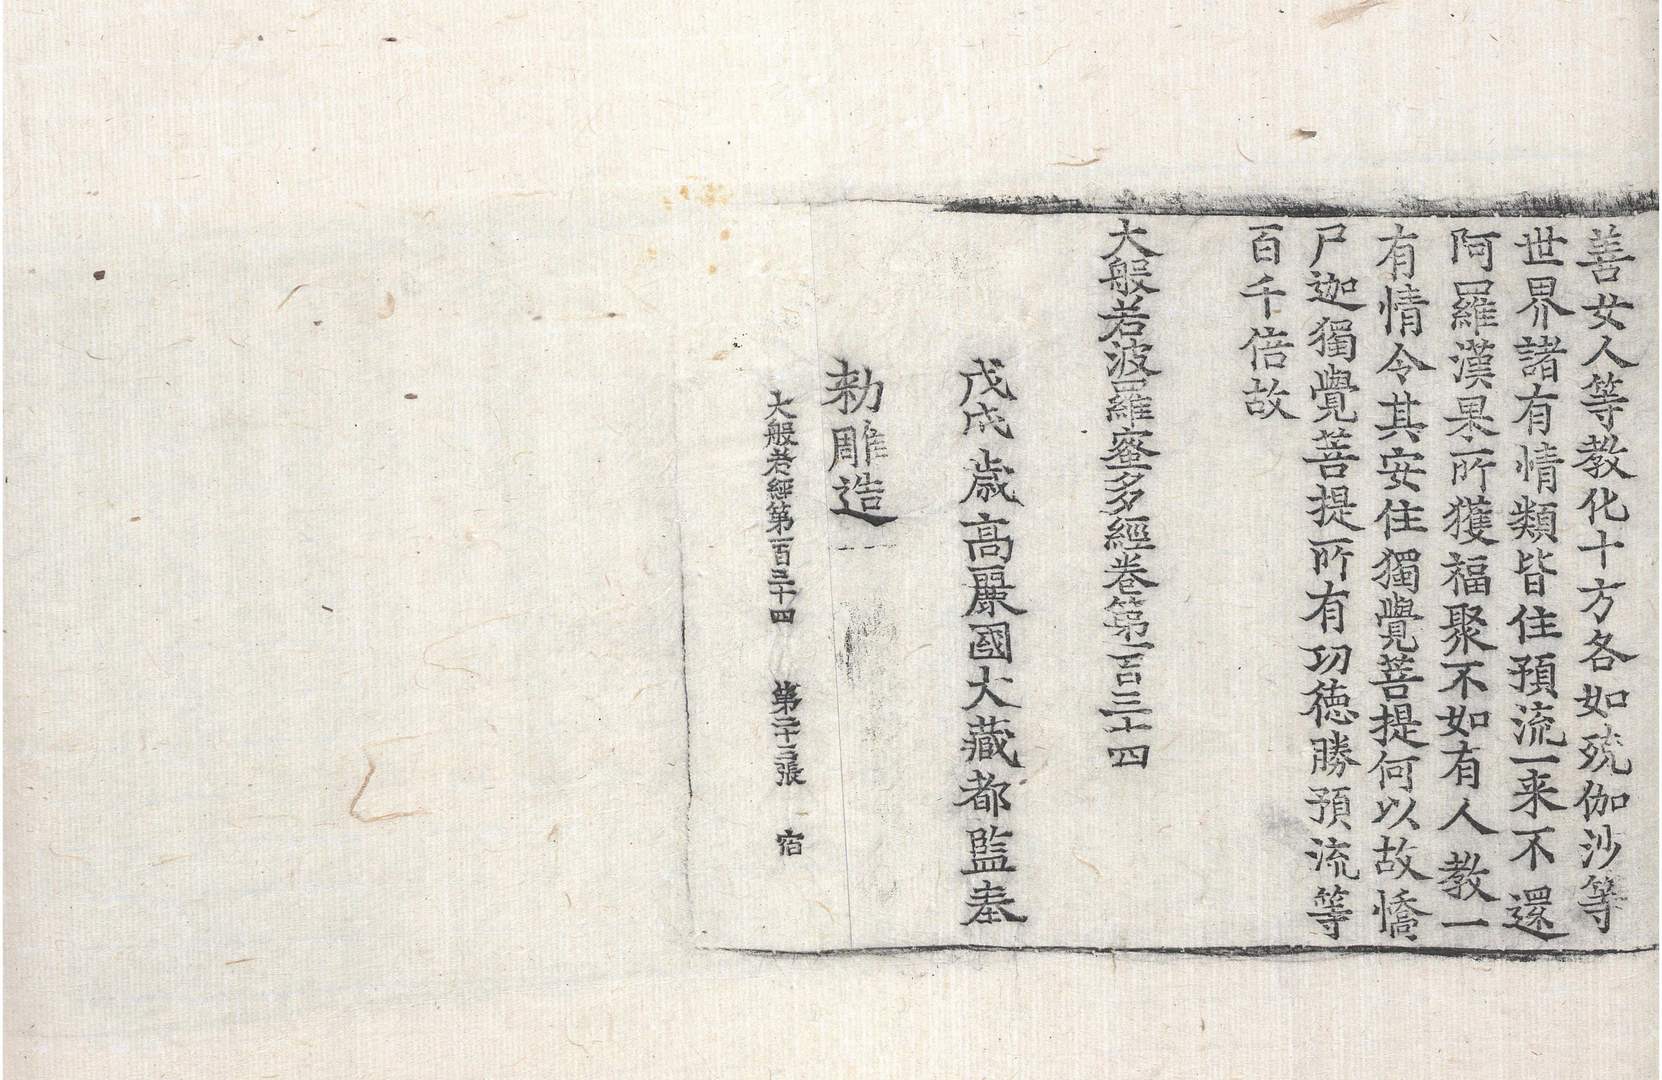 善女人等教化十方各如殑伽沙等
世界諸有情類皆住預流一来不還
阿羅漢果所獲福聚不如有人教一
有情令其安住獨覺菩提何以故憍
尸迦獨覺菩提所有功德勝預流等
百千倍故
大般若波羅蜜多經卷第一百三十四
戊戌歲高麗國大藏都監奉
勑雕造
大般若經第一百三十四 第二十三張 宿